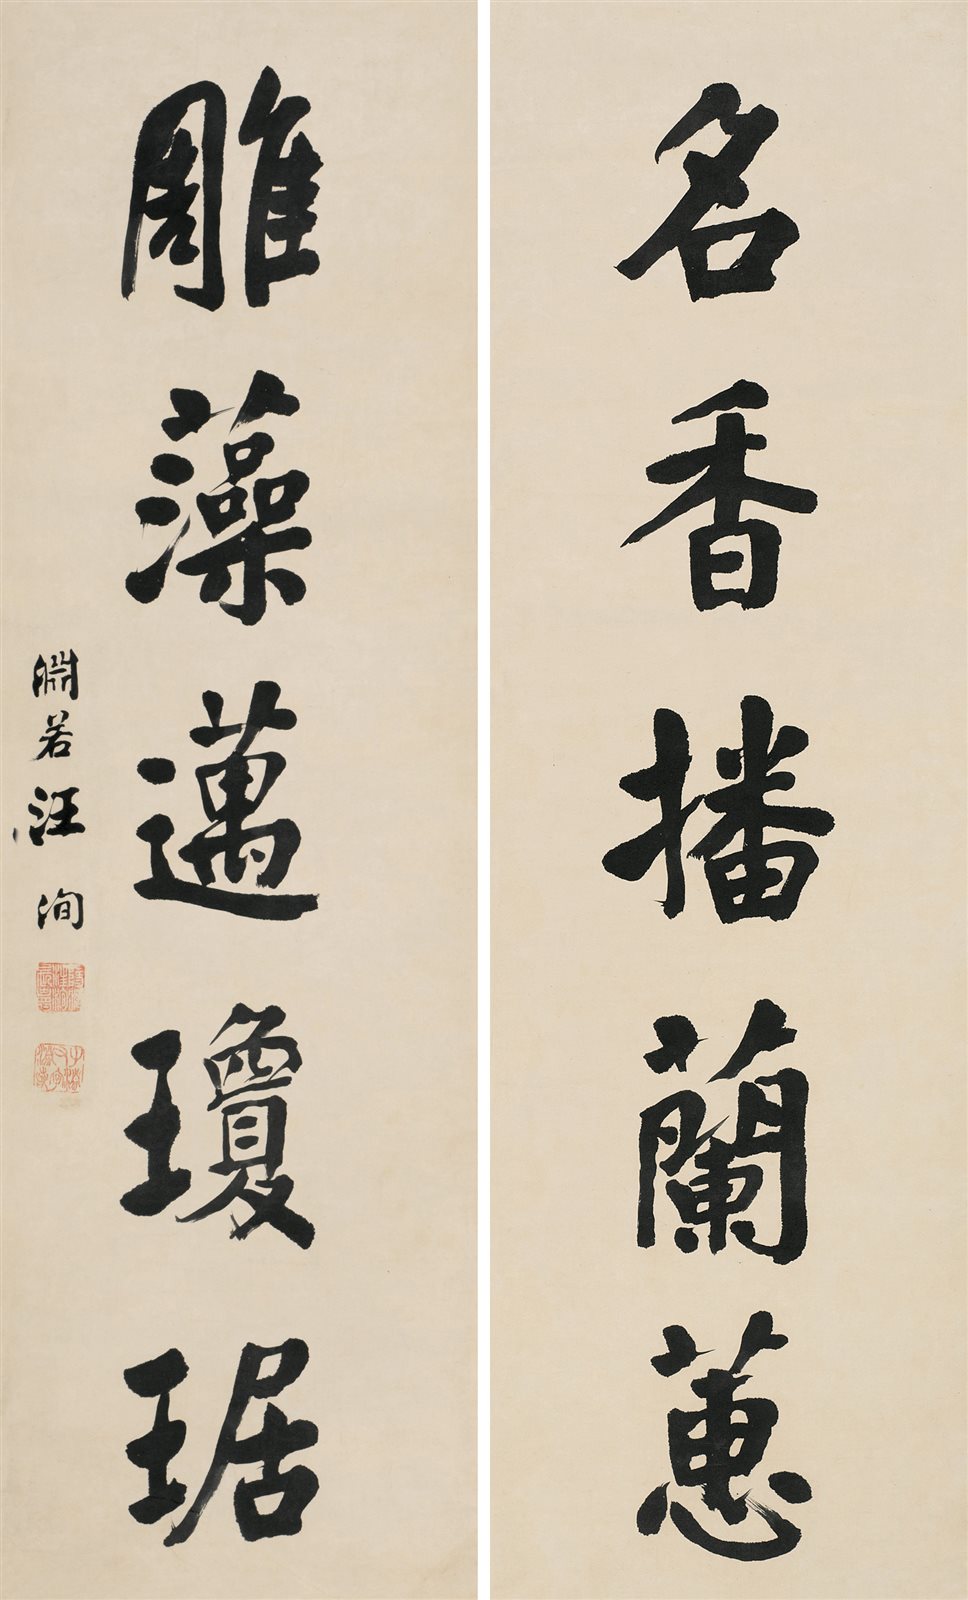 名香播蘭蕙
雕藻邁瓊琚
淵若汪洵